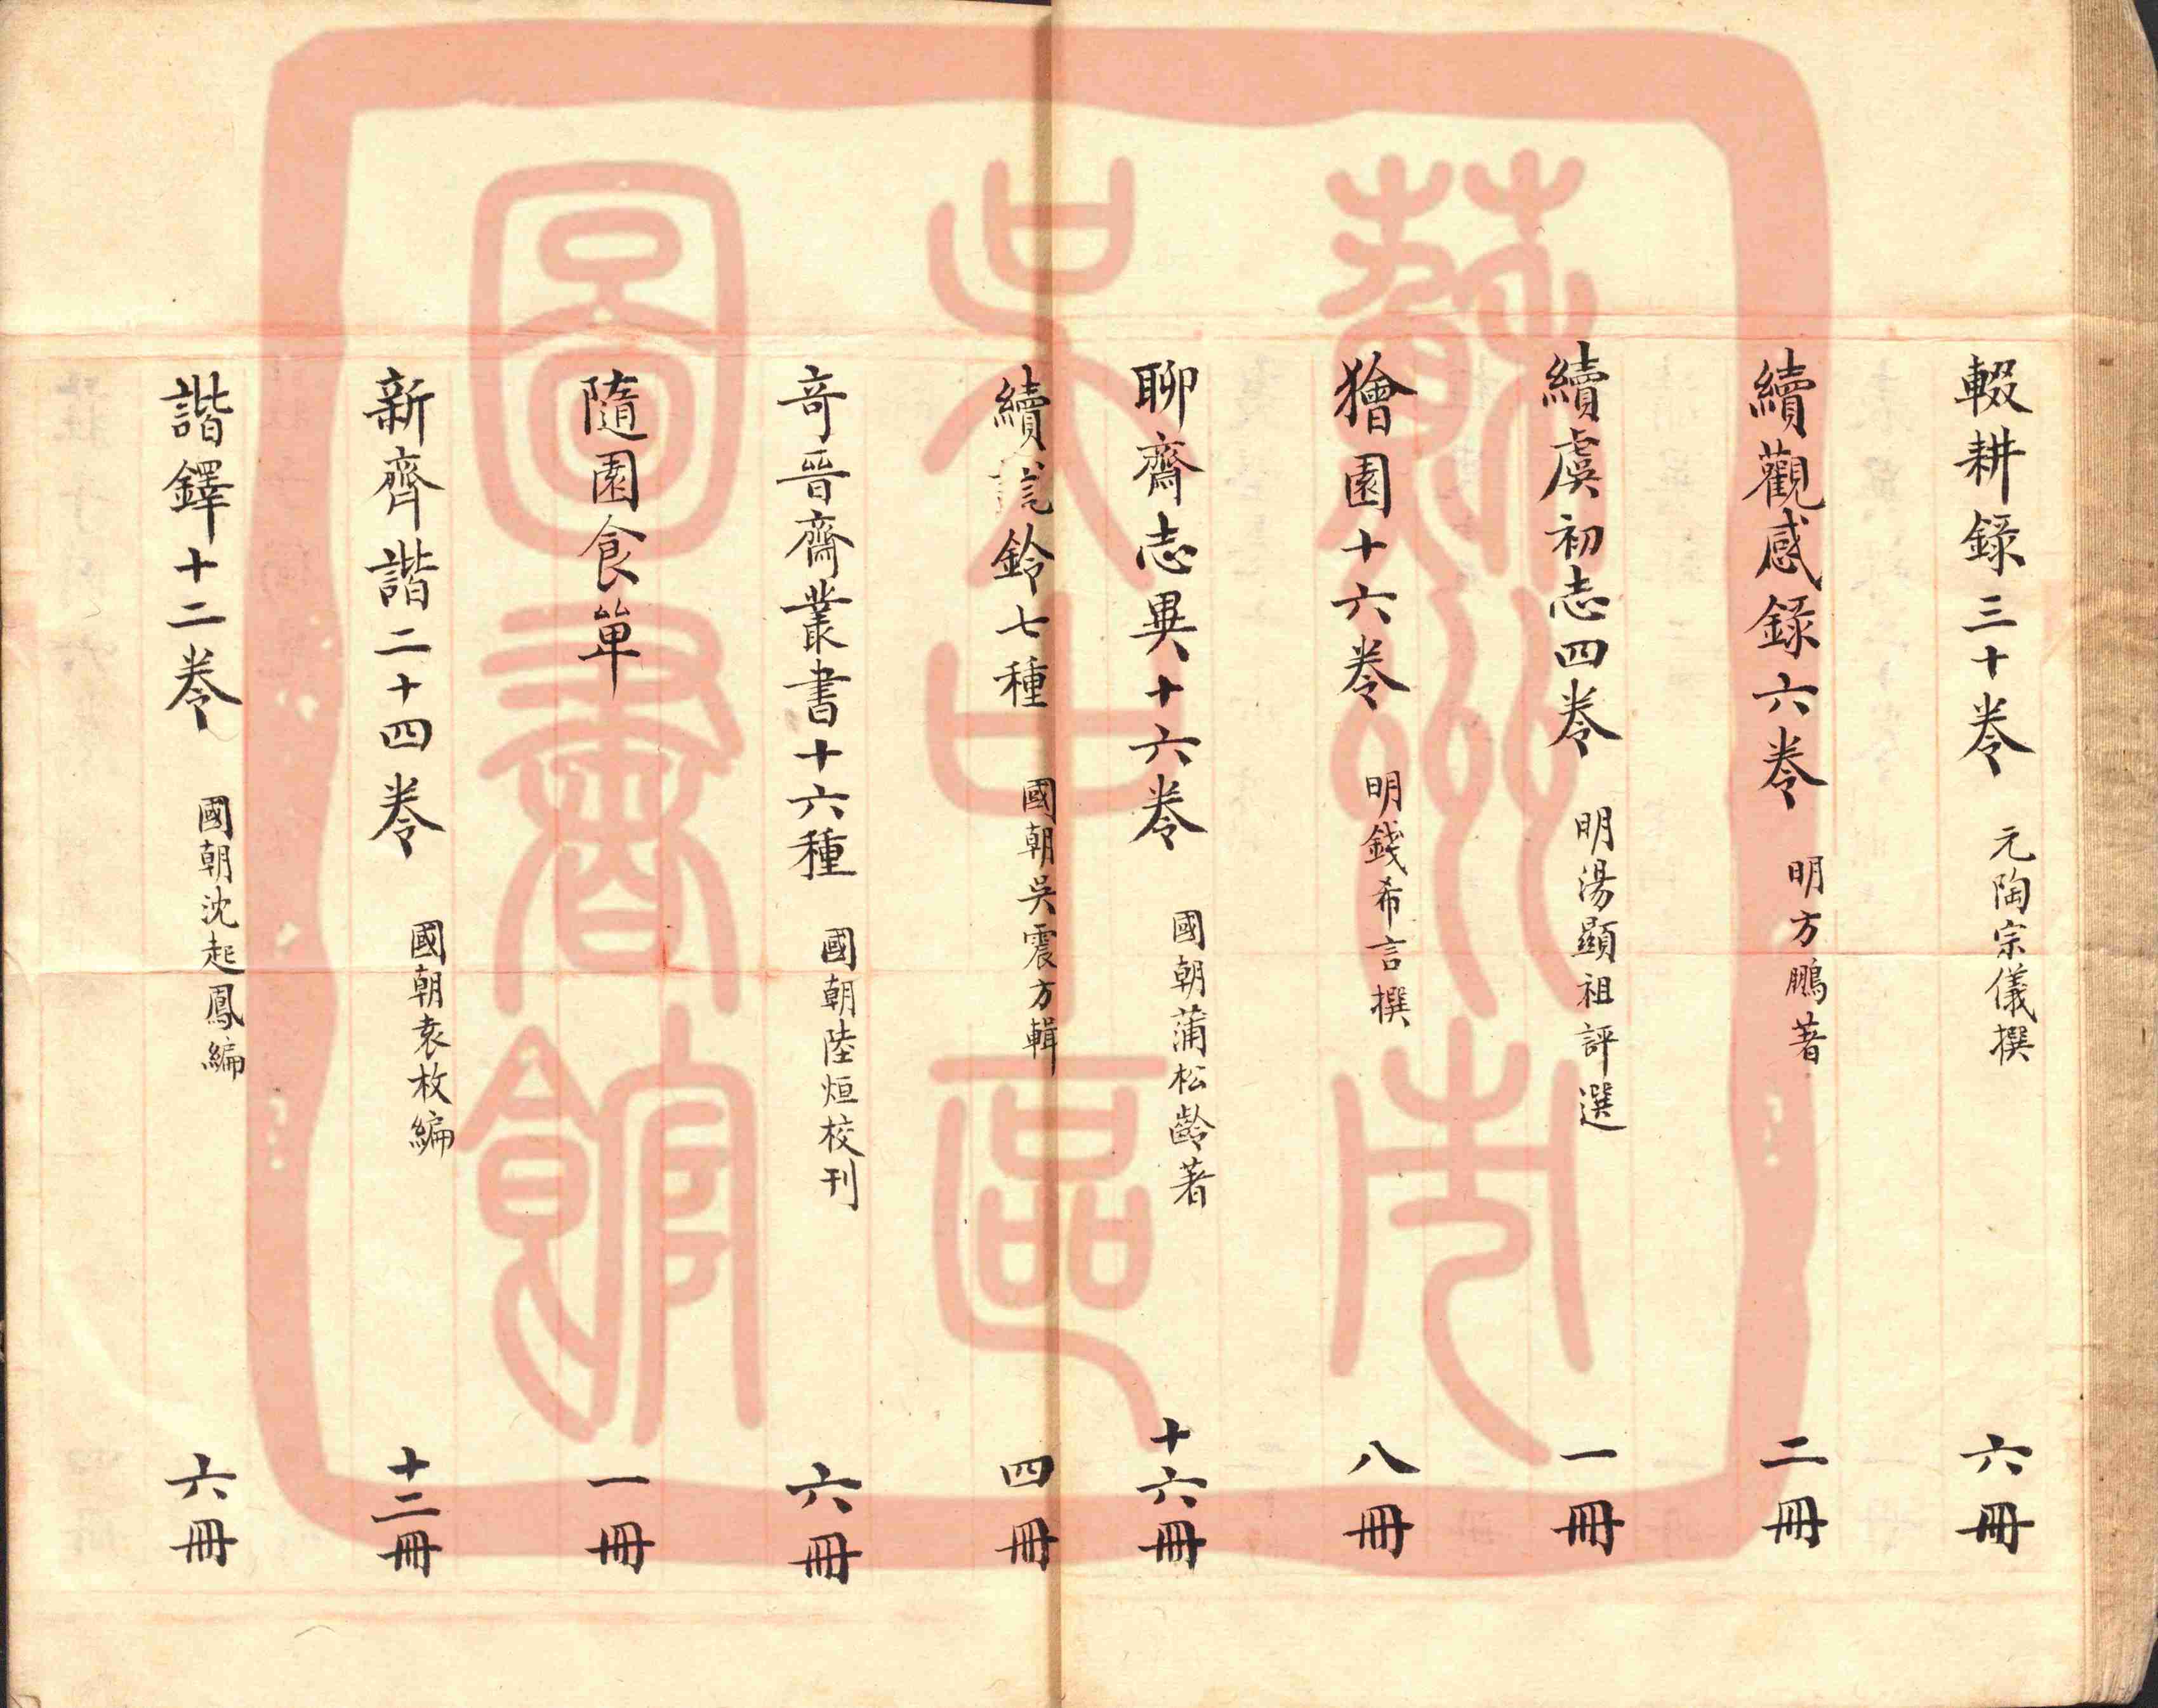 輟耕錄三十卷 元陶宗儀撰 六冊
續觀感錄六卷 明方鵬著 二冊
續虞初志四卷 明湯顯祖評選 一冊
獪園十六卷 明錢希言撰 八冊
聊齋志異十六卷 國朝蒲松齡著 十六冊
續說鈴七種 國朝吳震方輯 四冊
奇晉齋叢書十六種 國朝陸烜校刊 六冊
隨園食單 一冊
新齊諧二十四卷 國朝袁枚編 十二冊
諧鐸十二卷 國朝沈起鳳編 六冊
蘇州市
吳中區
圖書館